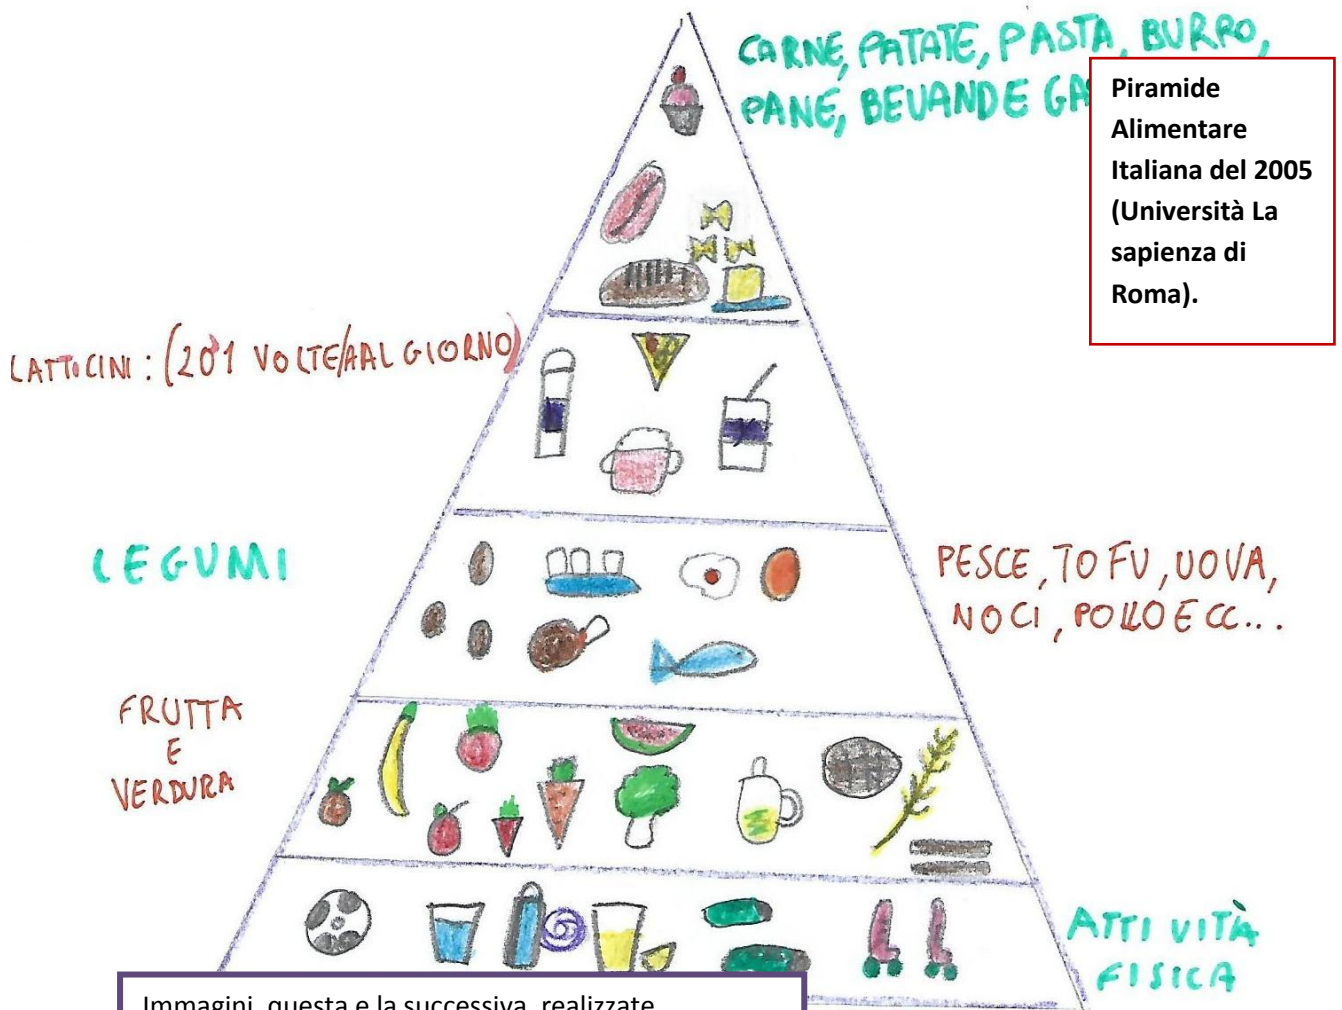 CARNE, PATATE, PASTA, BURRO,
PANE, BEVANDE GA
Piramide
Alimentare
Italiana del 2005
(Università La
sapienza di
Roma).
LATTICINI: (2 O 1 VOLTE/A AL GIORNO)
LEGUMI
PESCE, TOFU, UOVA,
NOCI, POLLO ECC...
FRUTTA
E
VERDURA
ATTIVITÀ
FISICA
Immagini, questa e la successiva, realizzate